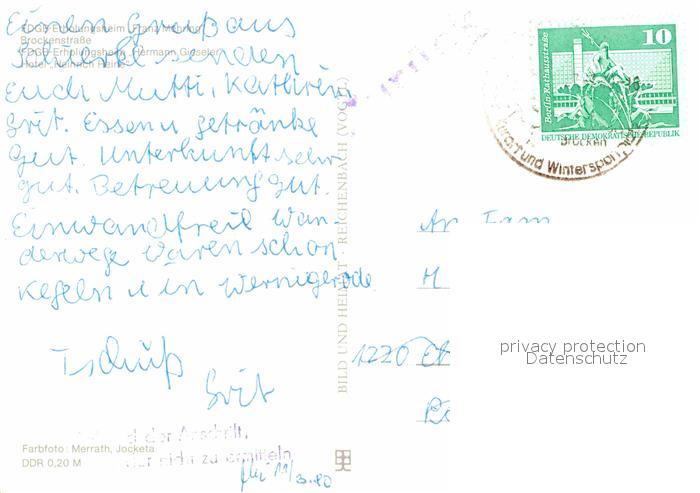 Einen Gruß aus
FDGB-Erholungsheim „Franz Mehring“
Brockenstraße
Schierke senden
FDGB-Erholungsheim „Hermann Gieseler“
Hotel „Heinrich Heine“
Euch Mutti, Kathrin u
Grit. Essen u getränke
gut. Unterkunft sehr
gut. Betreuung gut.
Einwandfreie Wan-
derwege waren schon
Kegeln u in Wernigerode
Tschüß
Grit
Farbfoto: Merrath, Jocketa
DDR 0,20 M
der Anschrift
nicht zu ermitteln
11/3.80
BILD UND HEIMAT · REICHENBACH (VOGTL)
Berlin, Rathausstraße
10
DEUTSCHE DEMOKRATISCHE REPUBLIK
Brocken
Kurort und Wintersport
An Fam
M
1220
privacy protection
Datenschutz